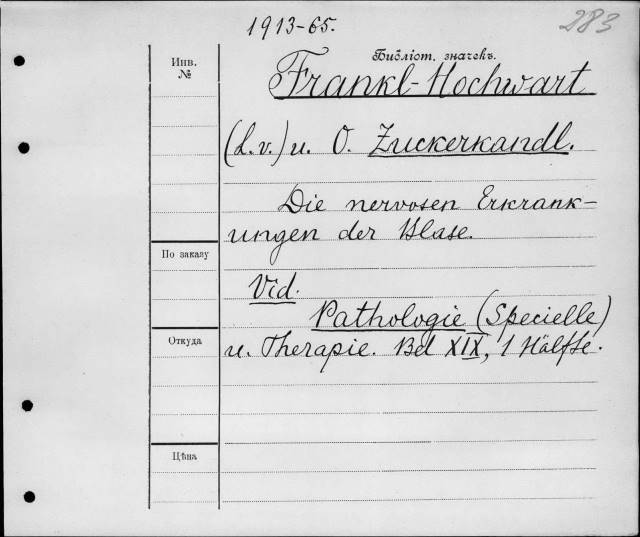 1913-65.
283
Инв.
№
Библіот. значекъ.
Frankl-Hochwart
(L.v.) u. O. Zuckerkandl.
Die nervosen Erkrank-
ungen der Blase.
По заказу
Vid.
Pathologie (Specielle)
Откуда
u. Therapie. Bd XIX, 1 Hälfte.
Цѣна